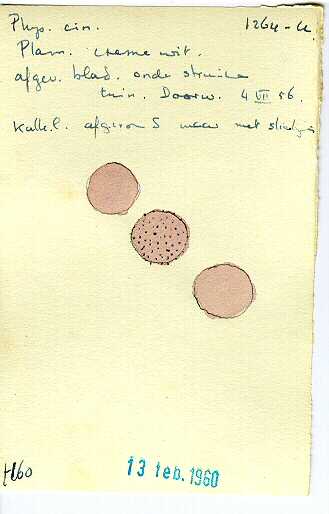 Phys. cin. 1264-a
Plasm. creme wit.
afgev. blad. onder struiken
tuin. Doorw. 4 VII 56.
Kalkl. afgerond maar met
1960
13 feb. 1960